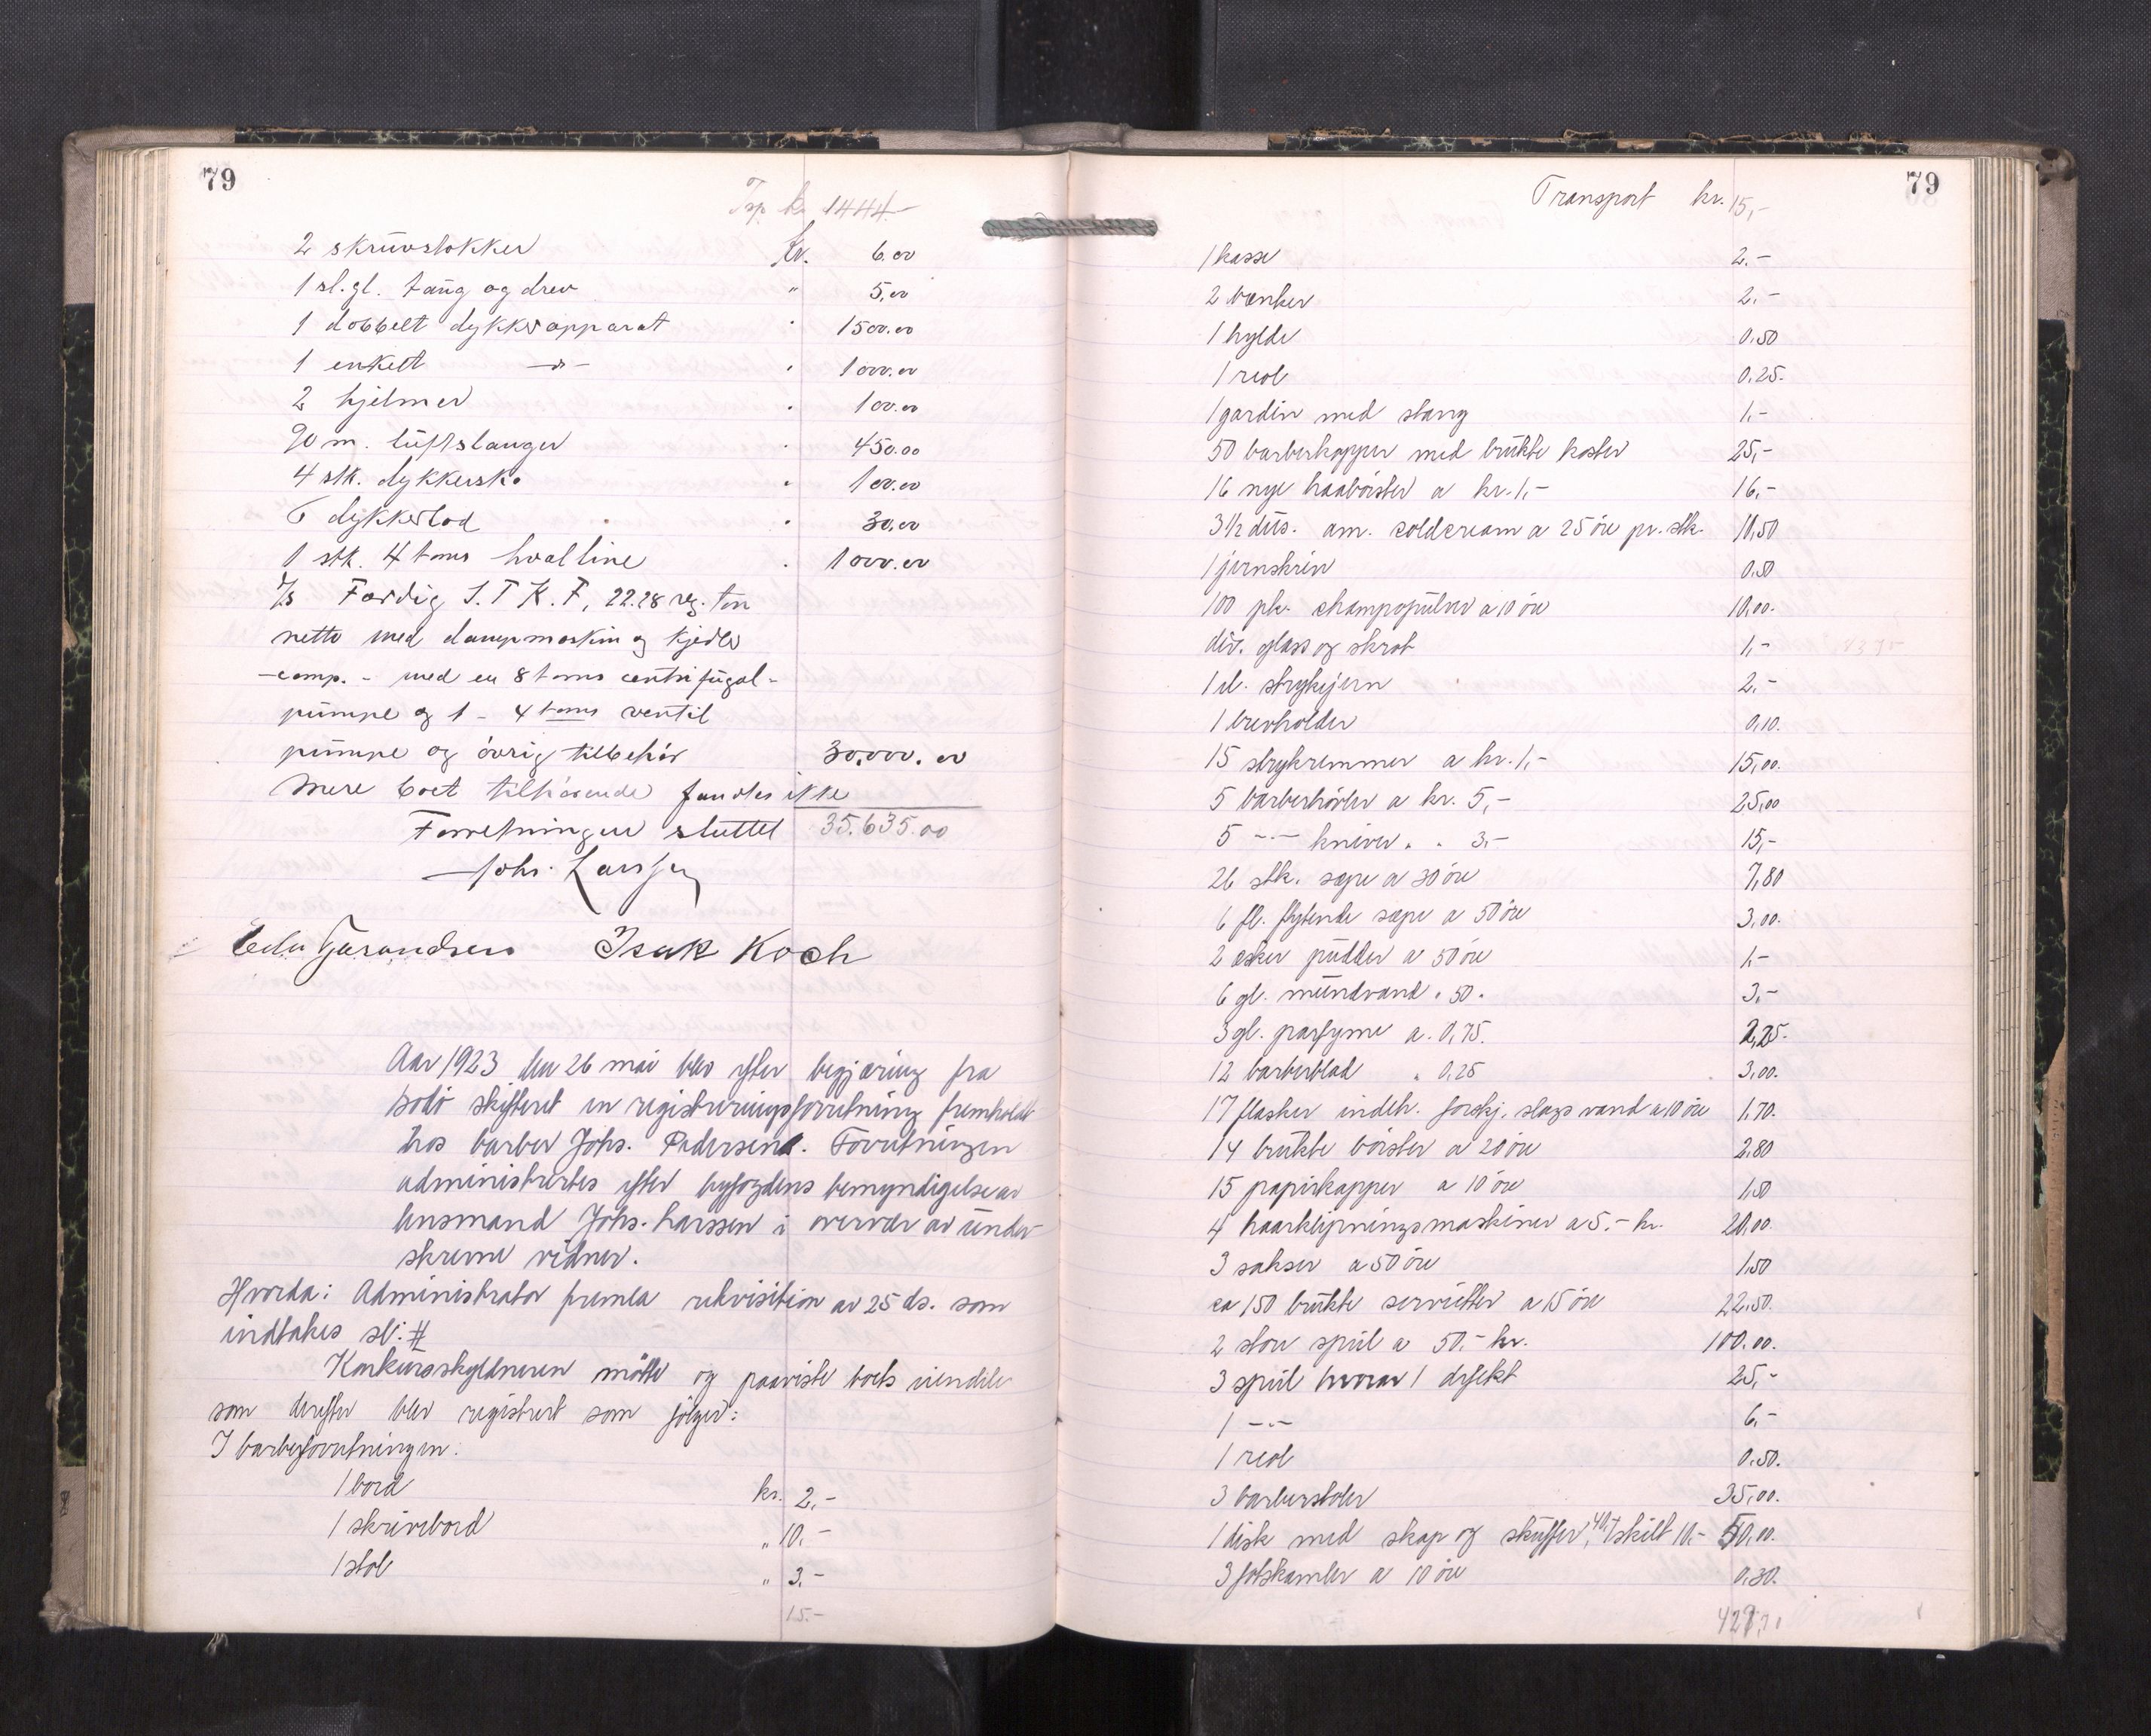 79
Tsp. kr. 1444.-
2 skruvstokker kr. 6.00
1 sl.gl. tang og drev " 5,00
1 dobbelt dykkerapparat " 1500.00
1 enkelt -"- " 1000.00
2 hjelmer " 100.00
90 m. luftslanger " 450.00
4 stk. dykkersko " 100.00
6 dykkerlod " 30,00
1 stk. 4 toms hvalline " 1000.00
D/s Færdig S.T.K.F, 22.28 reg. ton
netto med dampmaskin og kjedel
-comp. - med en 8 toms centrifugal-
pumpe og 1 - 4 toms ventil
pumpe og övrig tilbehör 30.000.00
Mere boet tilhörende fandtes ikke
Forretningen sluttet 35.635.00
Johs. Larssen
Isak Koch
Aar 1923 den 26 mai blev efter begjæring fra
Bodö skifteret en registreringsforretning fremholdt
hos barber Johs. Pedersen. Forretningen
administrertes efter byfogdens bemyndigelse av
lensmand Johs. Larssen i overvær av under-
skrevne vidner.
Hvorda: Administrator fremla rekvisition av 25 ds. som
indtakes sl. #
Konkursskyldneren mötte og paaviste boets eiendele
som derefter blev registrert som fölger:
I barberforretningen:
1 bord kr. 2,-
1 skrivebord " 10.-
1 stol " 3.-
15.-
79
Transport kr. 15,-
1 kasse 2.-
2 bænker 2.-
1 hylde 0,50
1 reol 0,25.
1 gardin med stang 1,-
50 barberkopper med brukte koster 25,-
16 nye haarbörster a kr. 1,- 16,-
3 1/2 dus. am. coldcream a 25 öre pr. stk. 10,50
1 jernskrin 0,50
100 pk. champopulver a 10 öre 10,00.
div. glass og skrot 1,-
1 el. strykejern 2,-
1 brevholder 0,10.
15 strykremmer a kr. 1,- 15,00.
5 barberhövler a kr. 5,- 25,00
5 -"- kniver " " 3.- 15,-
26 stk. sæpe a 30 öre 7,80
6 fl. flytende sæpe a 50 öre 3,00.
2 æsker pudder a 50 öre 1.-
6 gl. mundvand " 50 " 3,-
3 gl. parfyme a. 0,75. 2,25.
12 barberblad " 0,25 3,00.
17 flasker indeh. forskj. slags vand a 10 öre 1,70.
14 brukte börster a 20 öre 2,80
15 papirkapper a 10 öre 1,50
4 haarklipningsmaskiner a 5.- kr. 20,00.
3 sakser a 50 öre 1,50
ca 150 brukte servietter a 15 öre 22,50.
2 store speil a 50.- kr. 100.00.
3 speil hvorav 1 defekt 25,-
1 -"- 6,-
1 reol 0.50.
3 barberstoler 35,00.
1 disk med skap og skuffer, 40,- 1 skilt 10.- 50,00.
3 fotskamler a 10 öre 0.30.